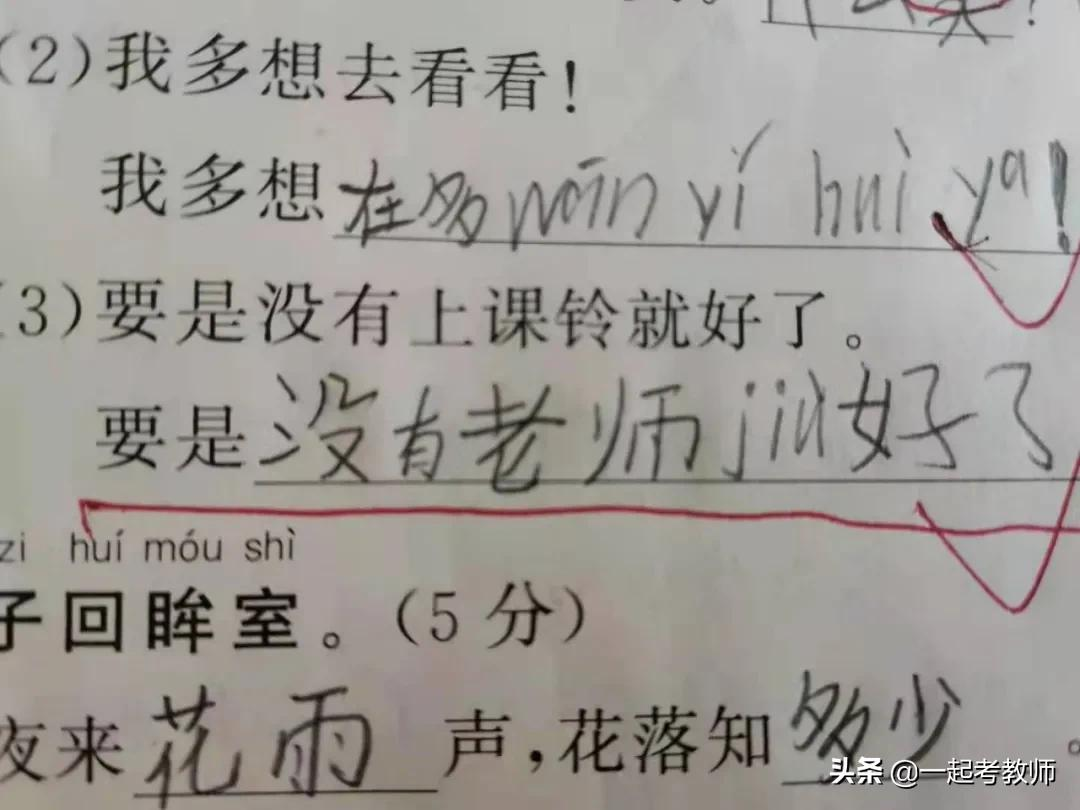 (2)我多想去看看!
我多想在多wán yí huì ya!
(3)要是没有上课铃就好了。
要是没有老师jiù好了
zi huí móu shì
子回眸室。(5分)
夜来花雨声,花落知多少。
头条 @一起考教师